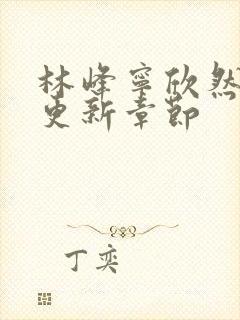 林峰寧欣然
更新章節
丁奕